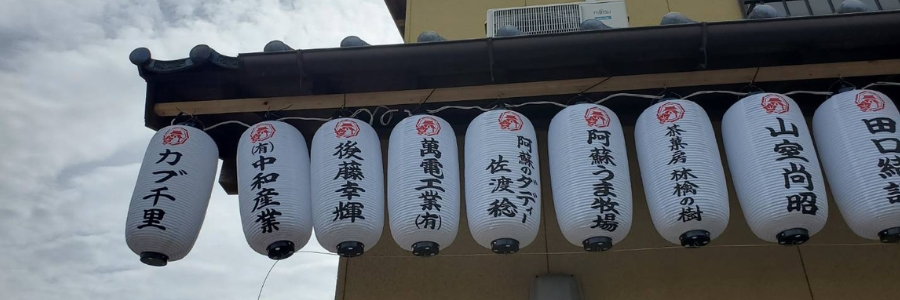 カブ千里
(有)中和産業
後藤幸輝
萬電工業(有)
阿蘇のダディ
佐渡稔
阿蘇うま牧場
茶菓房 林檎の樹
山室尚昭
田口結